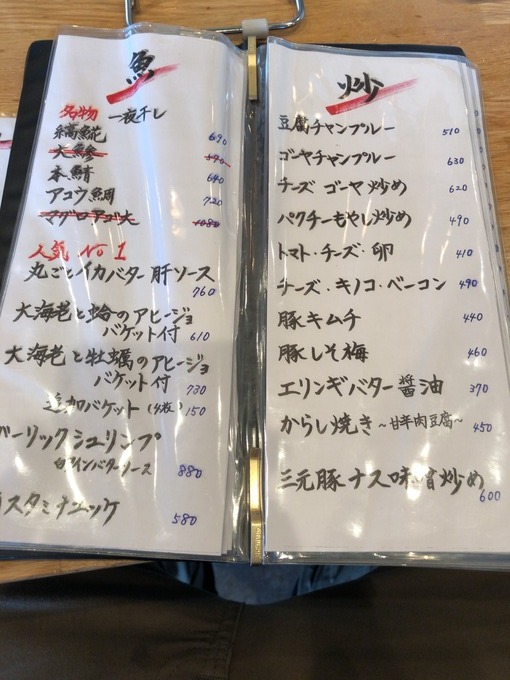 魚
名物 一夜干し
縞𩸽 690
大鯵 590
本鯖 640
アコウ鯛 720
マグロアゴ大 1080
人気 No 1
丸ごとイカバター肝ソース
760
大海老と蛤のアヒージョ
バケット付 610
大海老と牡蠣のアヒージョ
バケット付
730
追加バケット (4枚) 150
ガーリックシュリンプ
白ワインバターソース 880
スタミナユッケ
580
炒
豆腐チャンプルー 510
ゴーヤチャンプルー 630
チーズ ゴーヤ炒め 620
パクチーもやし炒め 490
トマト・チーズ・卵 410
チーズ・キノコ・ベーコン 490
豚キムチ 440
豚しそ梅 460
エリンギバター醤油 370
からし焼き ~甘辛肉豆腐~ 450
三元豚ナス味噌炒め
600